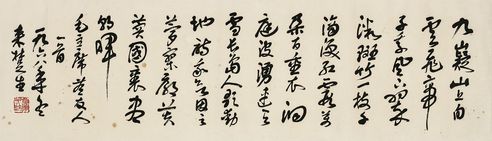 九嶷山上白
雲飛帝
子乘风下翠
微斑竹一枝千
滴泪红霞万
朵百重衣洞
庭波涌連天
雪长岛人歌動
地诗我欲因之
梦寥廓芙
蓉國裏尽
朝暉
毛主席答友人
一首
一九六八年冬
来楚生